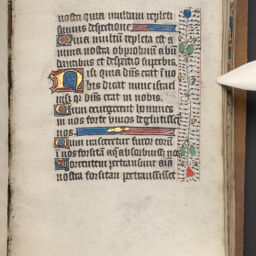 nostri quia multum repleti
sumus despectione
Quia multum repleta est a
nima nostra obprobrium abun
dantibus et despectio superbis
Nisi quia dñs erat ī no
bis dicat nunc israel
nisi qr dñs erat in nobis
Cum exurgerent homines
in nos forte vivos deglutissēt
nos
Cum irasceretur furor eorū
ī nos forsitā aq̄ absorbuisset nos
Torrentem pertransivit aīa
nostra forsitan pertransisset